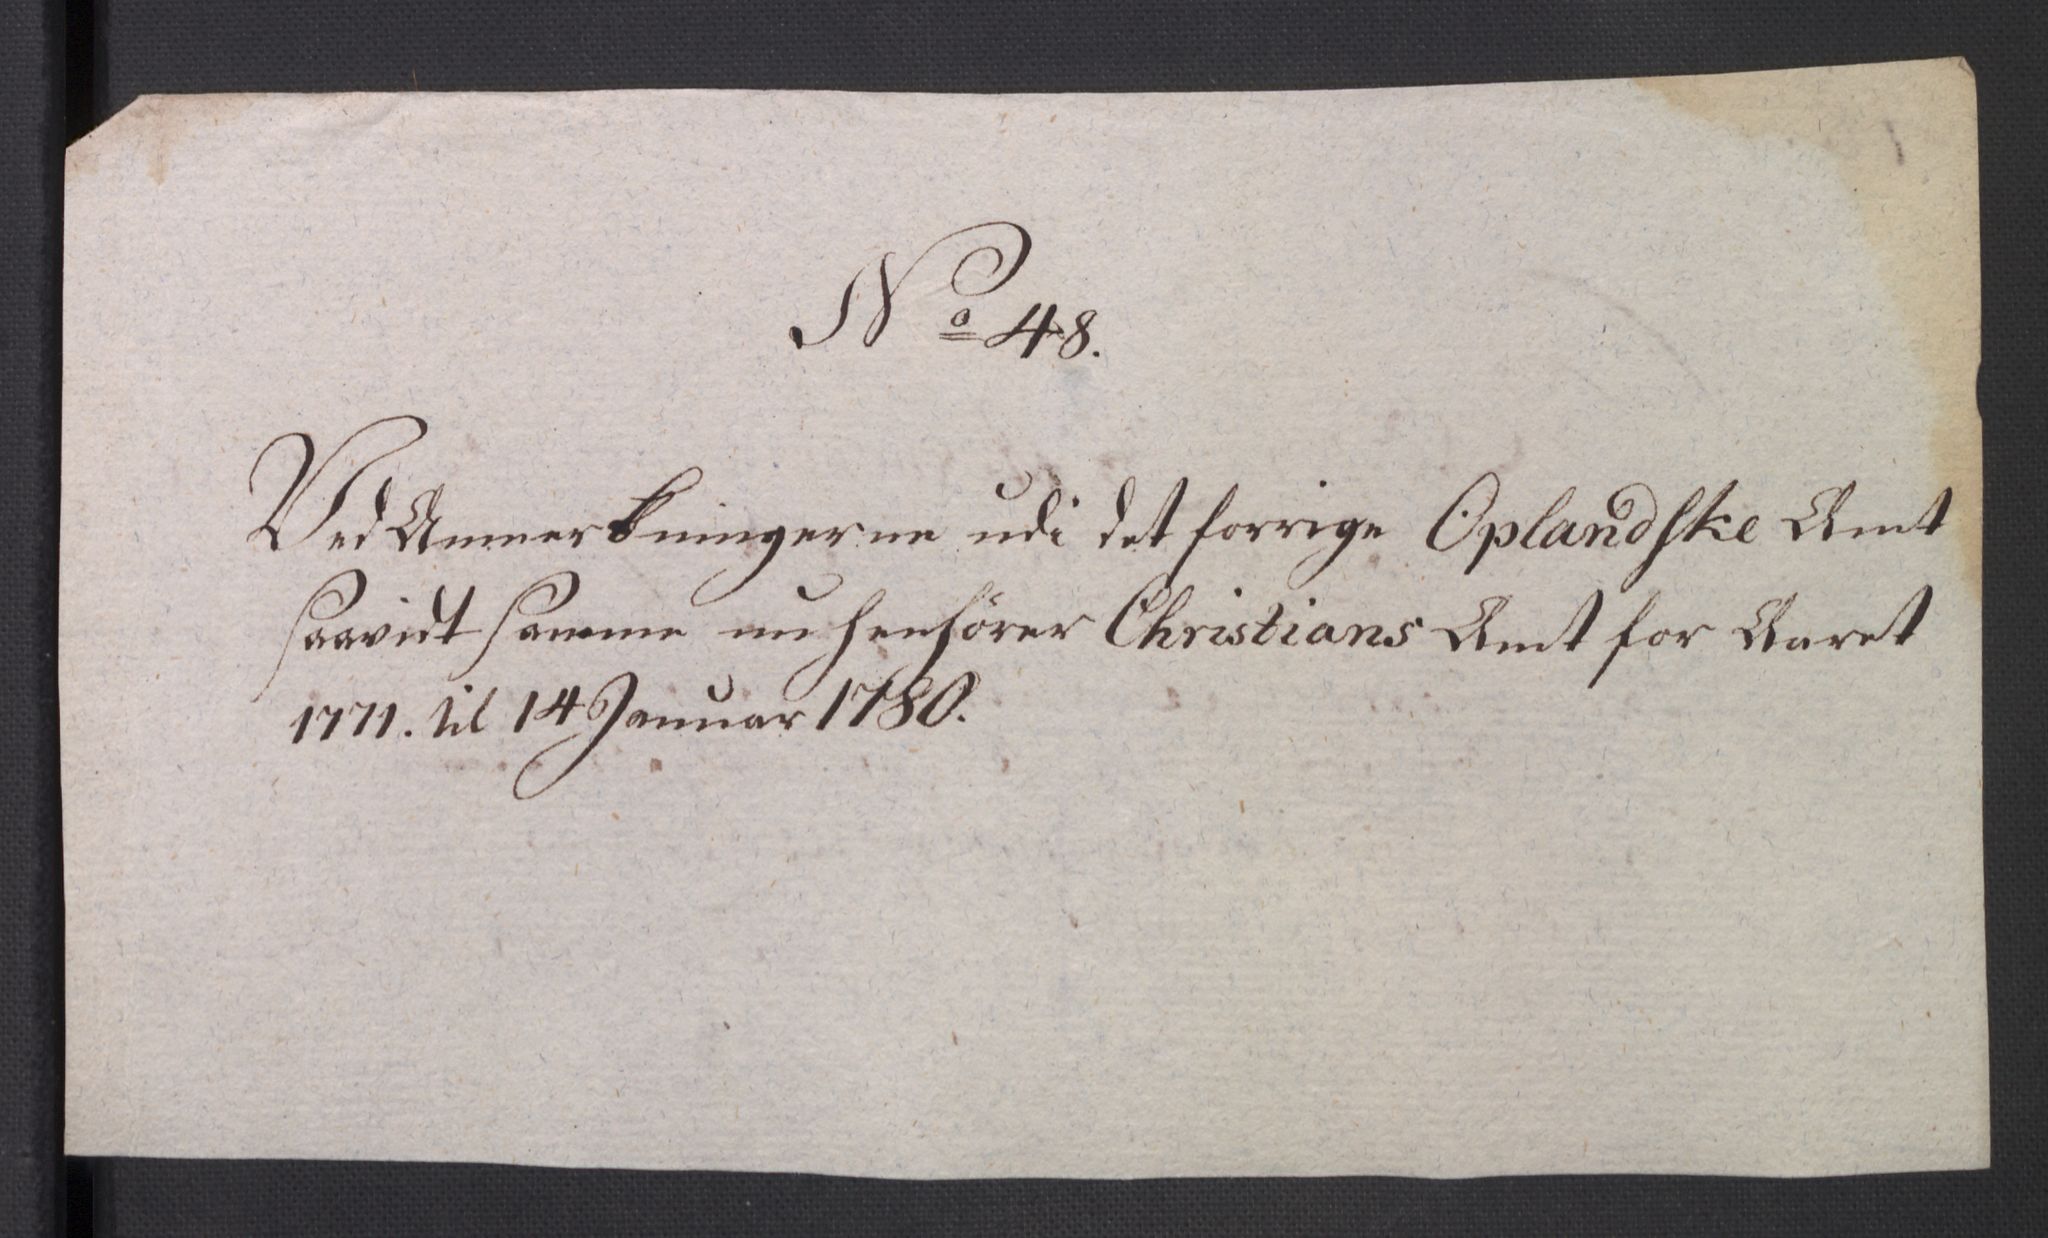 No 48.
Ved Anmerkningerne udi det forrige Oplandske Amt
saavidt samme nu henhörer Christians Amt for Aaret
1771. til 14 Januar 1780.